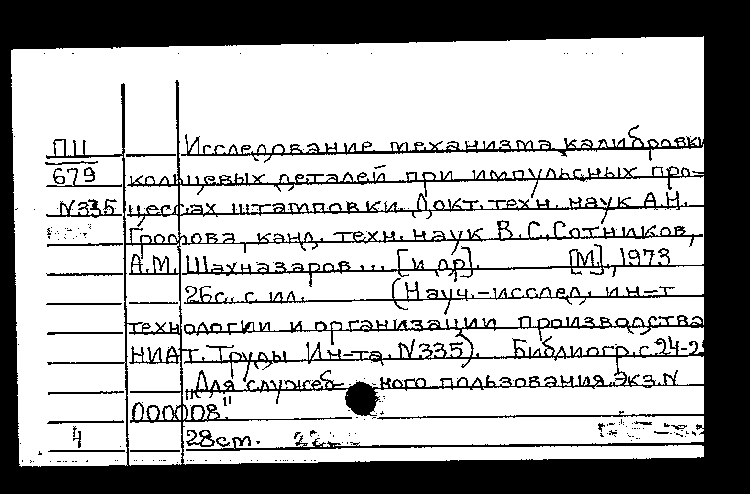 П11 Исследование механизма калибровки
679 кольцевых деталей при импульсных про=
N335 цессах штамповки. Докт. техн. наук А.Н.
Громова, канд. техн. наук В.С. Сотников,
А.М. Шахназаров... [и др]. [М], 1973
26с. с ил. (Науч.-исслед. ин-т
технологии и организации производства
НИАТ. Труды Ин-та. N335). Библиогр. с 24-2
"Для служеб- ного пользования. Экз. N
000008."
4 28см.